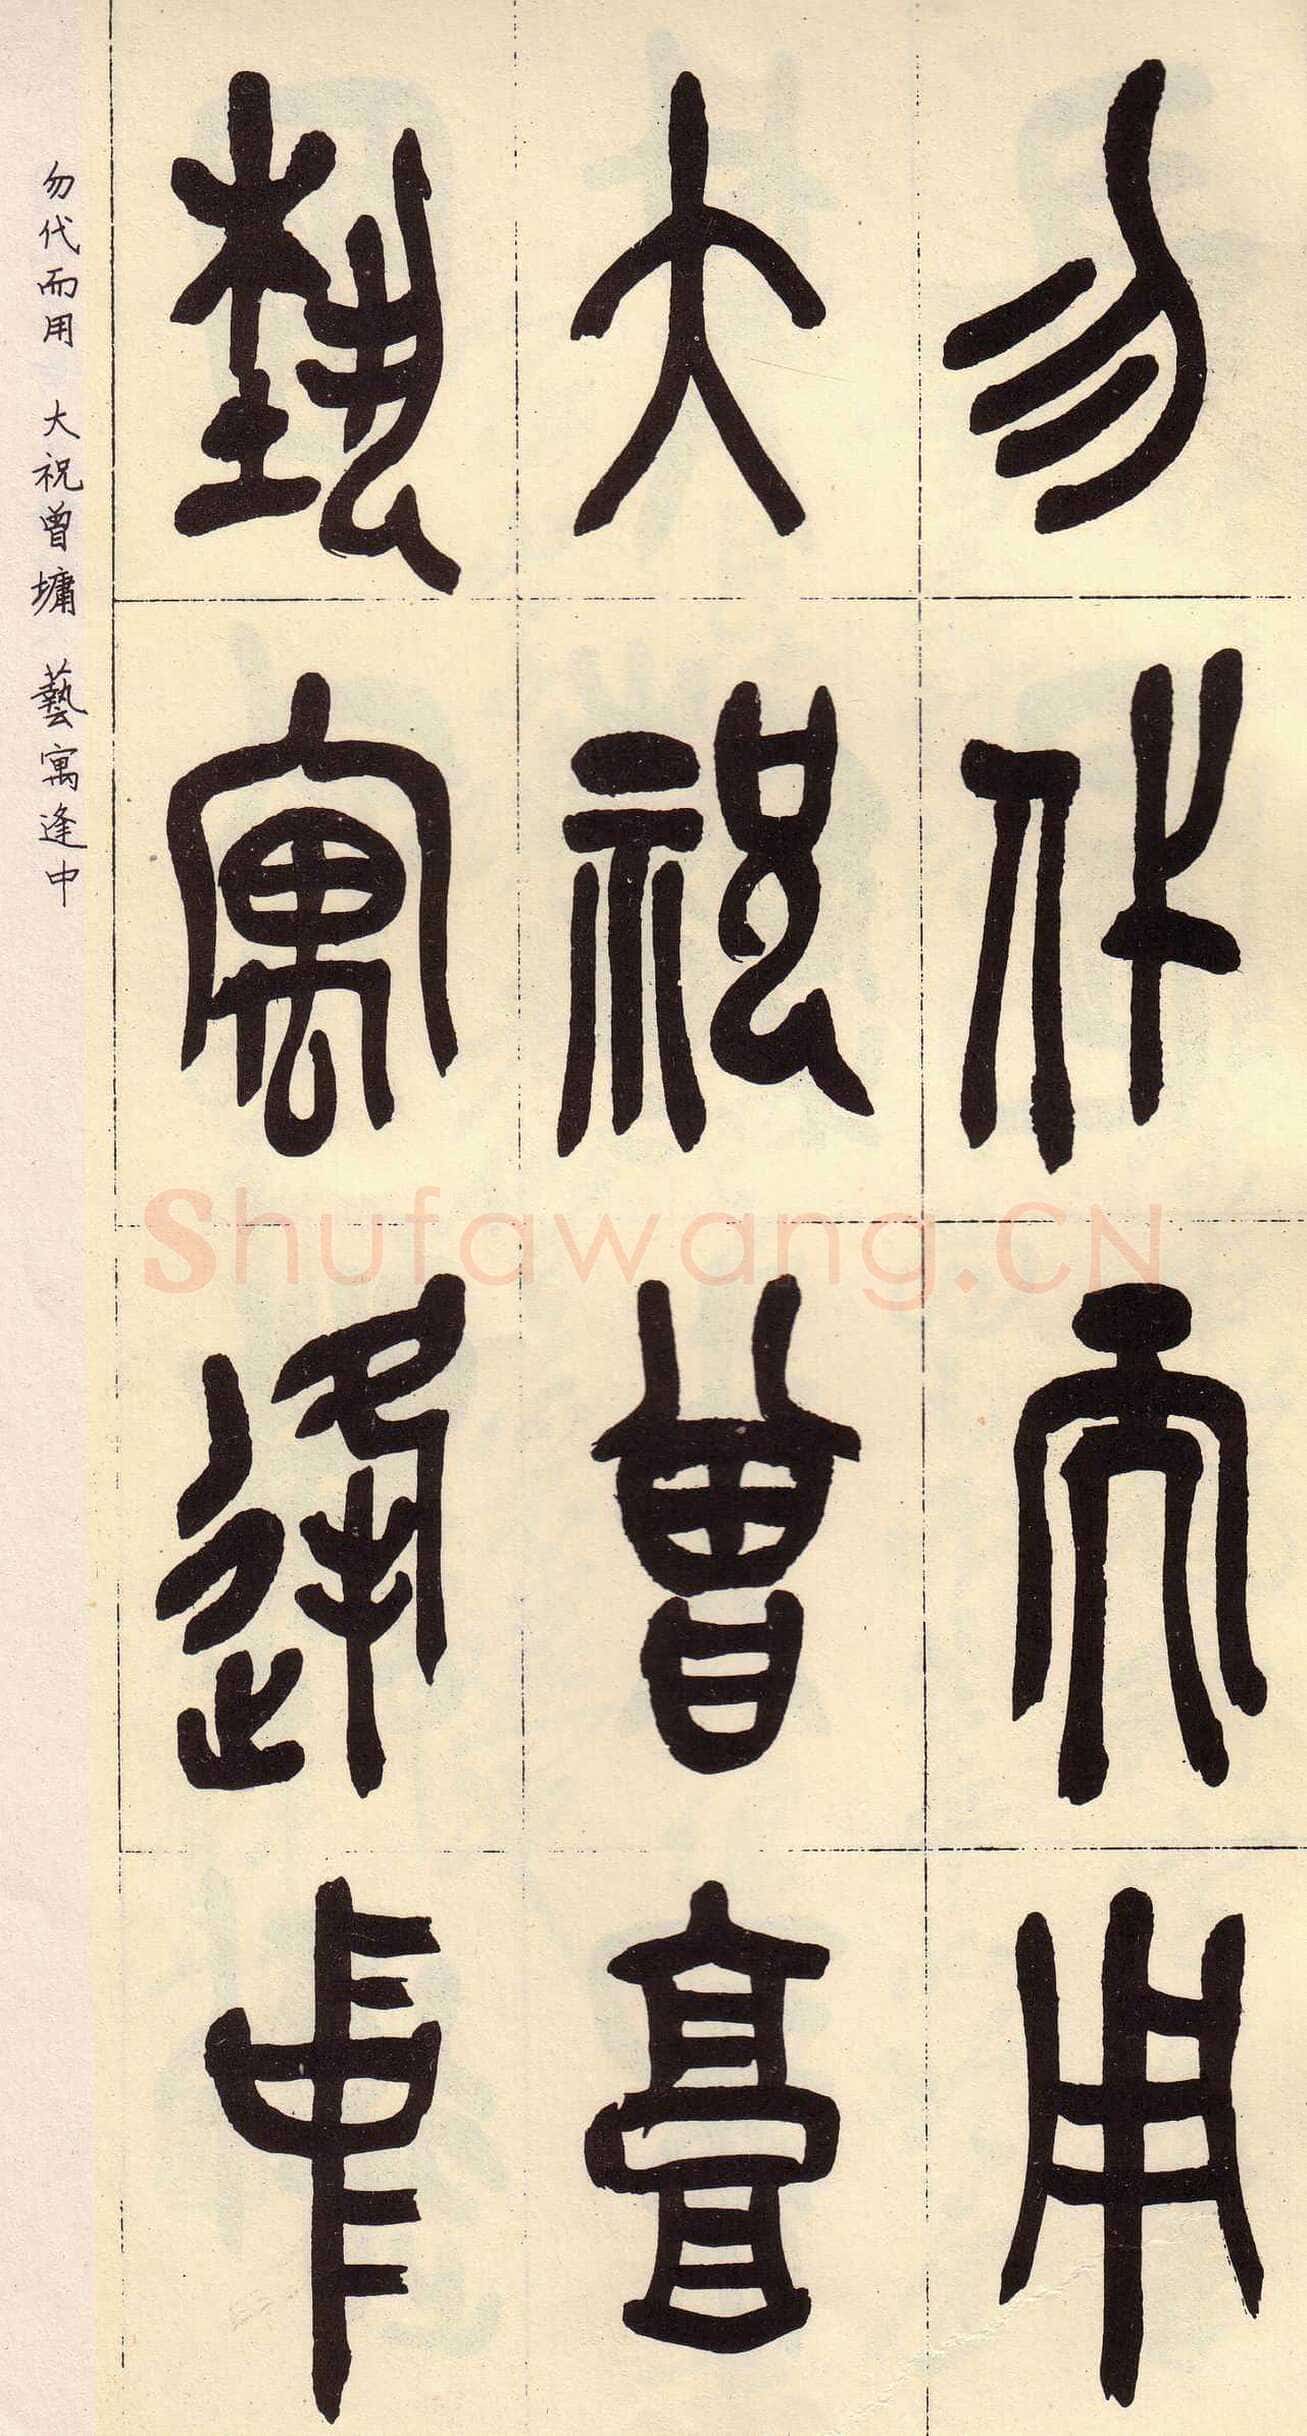 勿代而用
大祝曾墉
藝寓逢中
勿代而用 大祝曾墉 藝寓逢中
Shufawang.CN